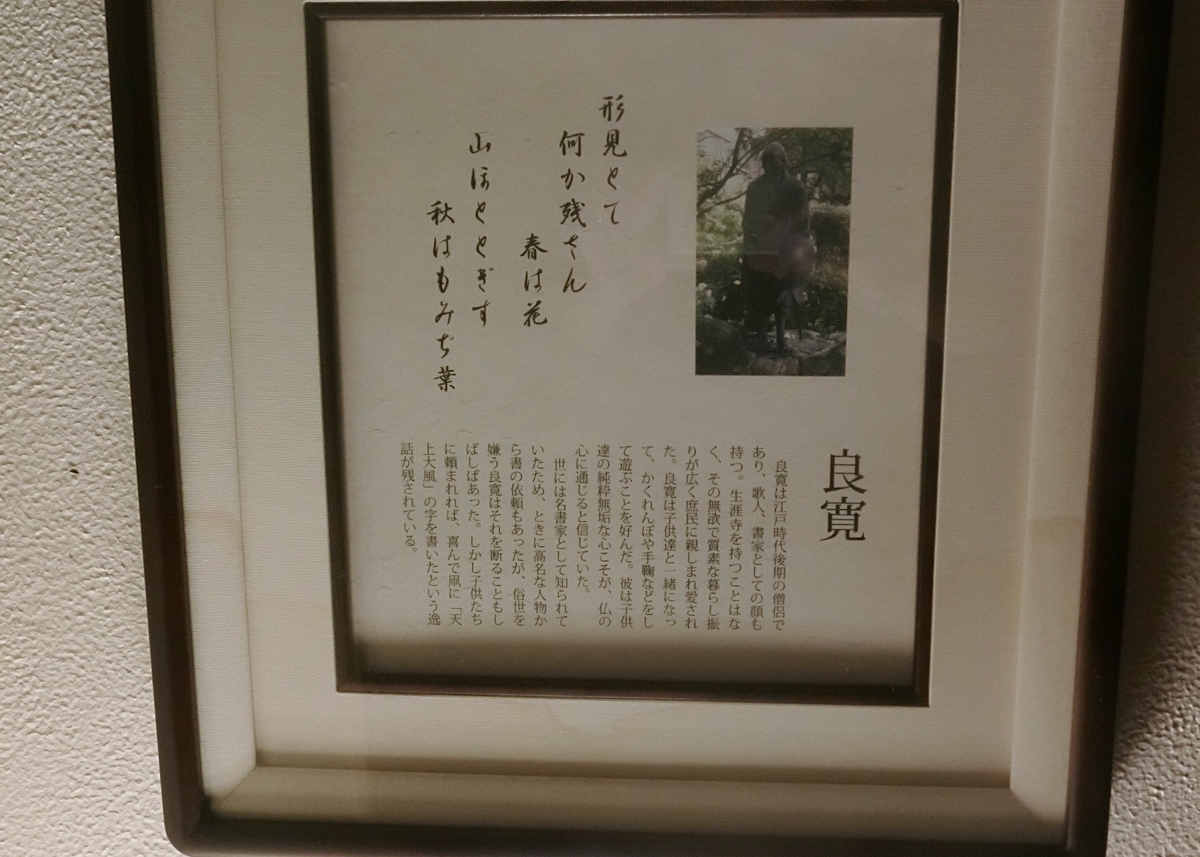 良寛
良寛は江戸時代後期の僧侶で
あり、歌人、書家としての顔も
持つ。生涯寺を持つことはな
く、その無欲で質素な暮らし振
りが広く庶民に親しまれ愛され
た。良寛は子供達と一緒になっ
て、かくれんぼや手鞠などをし
て遊ぶことを好んだ。彼は子供
達の純粋無垢な心こそが、仏の
心に通じると信じていた。
世には名書家として知られて
いたため、ときに高名な人物か
ら書の依頼もあったが、俗世を
嫌う良寛はそれを断ることもし
ばしばあった。しかし子供たち
に頼まれれば、喜んで凧に「天
上大風」の字を書いたという逸
話が残されている。
形見とて
何か残さん
春は花
山ほととぎす
秋はもみぢ葉